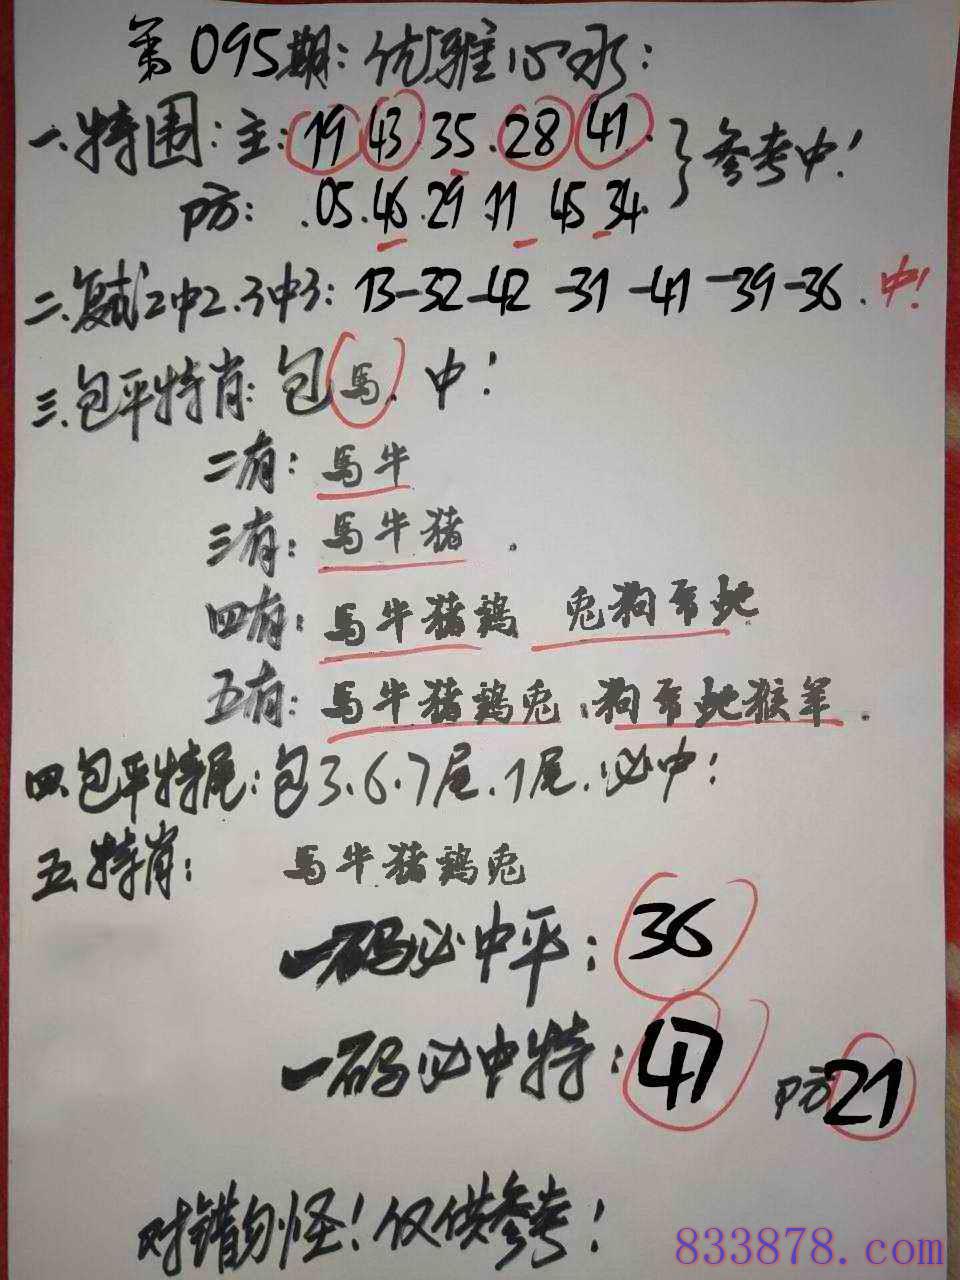 第095期:优雅心水:
一.特围:主:19.43.35.28.41. 参考中!
防: .05.46.29.11 45 34.
二.复式2中2.3中3: 13-32-42-31-41-39-36.中!
三.包平特肖:包馬.中!
二有:馬牛
三有:馬牛猪.
四有:馬牛猪鸡 兔狗龙蛇
五有:馬牛猪鸡兔.狗龙蛇猴羊.
四.包平特尾:包3.6.7尾.1尾.必中!
五.特肖: 馬牛猪鸡兔
一码必中平: 36
一码必中特: 47 防21
对错勿怪!仅供参考!
833878.com